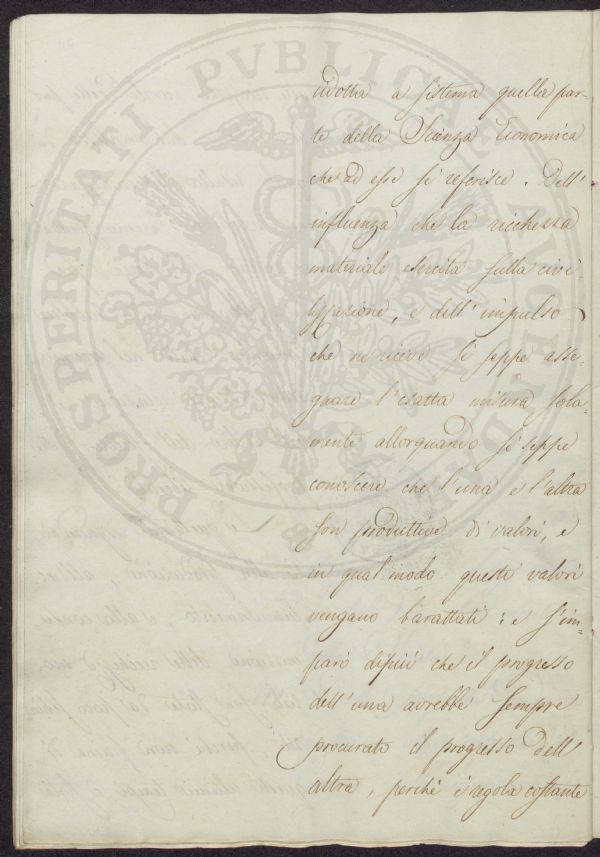 ridotta a sistema quella par-
te della Scienza Economica
che ad esse si referisce. Dell'
influenza che la ricchezza
materiale esercita sulla civi
lizzazione, e dell' impulso
che ne riceve si seppe asse-
gnare l'esatta misura sola-
mente allorquando si seppe
conoscere che l'una e l'altra
son produttive di valori, e
in qual modo questi valori
vengano barattati: e s'im-
parò dipiù che il progresso
dell'una avrebbe sempre
procurato il progresso dell'
altra, perchè è regola costante
PROSPERITATI PVBLICAE AVGENDAE